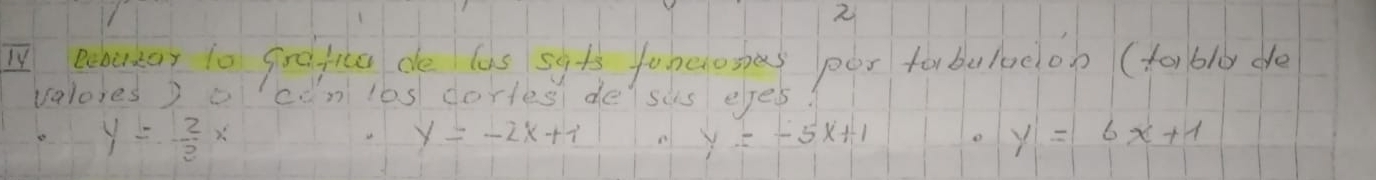 2
IV Debuzar la gráfica de las sgts funciones por tabulación (tabla de
valores) o con los cortes de sus ejes.
• y = 2/3 x • y = -2x+1 • y = -5x+1 • y = 6x+1